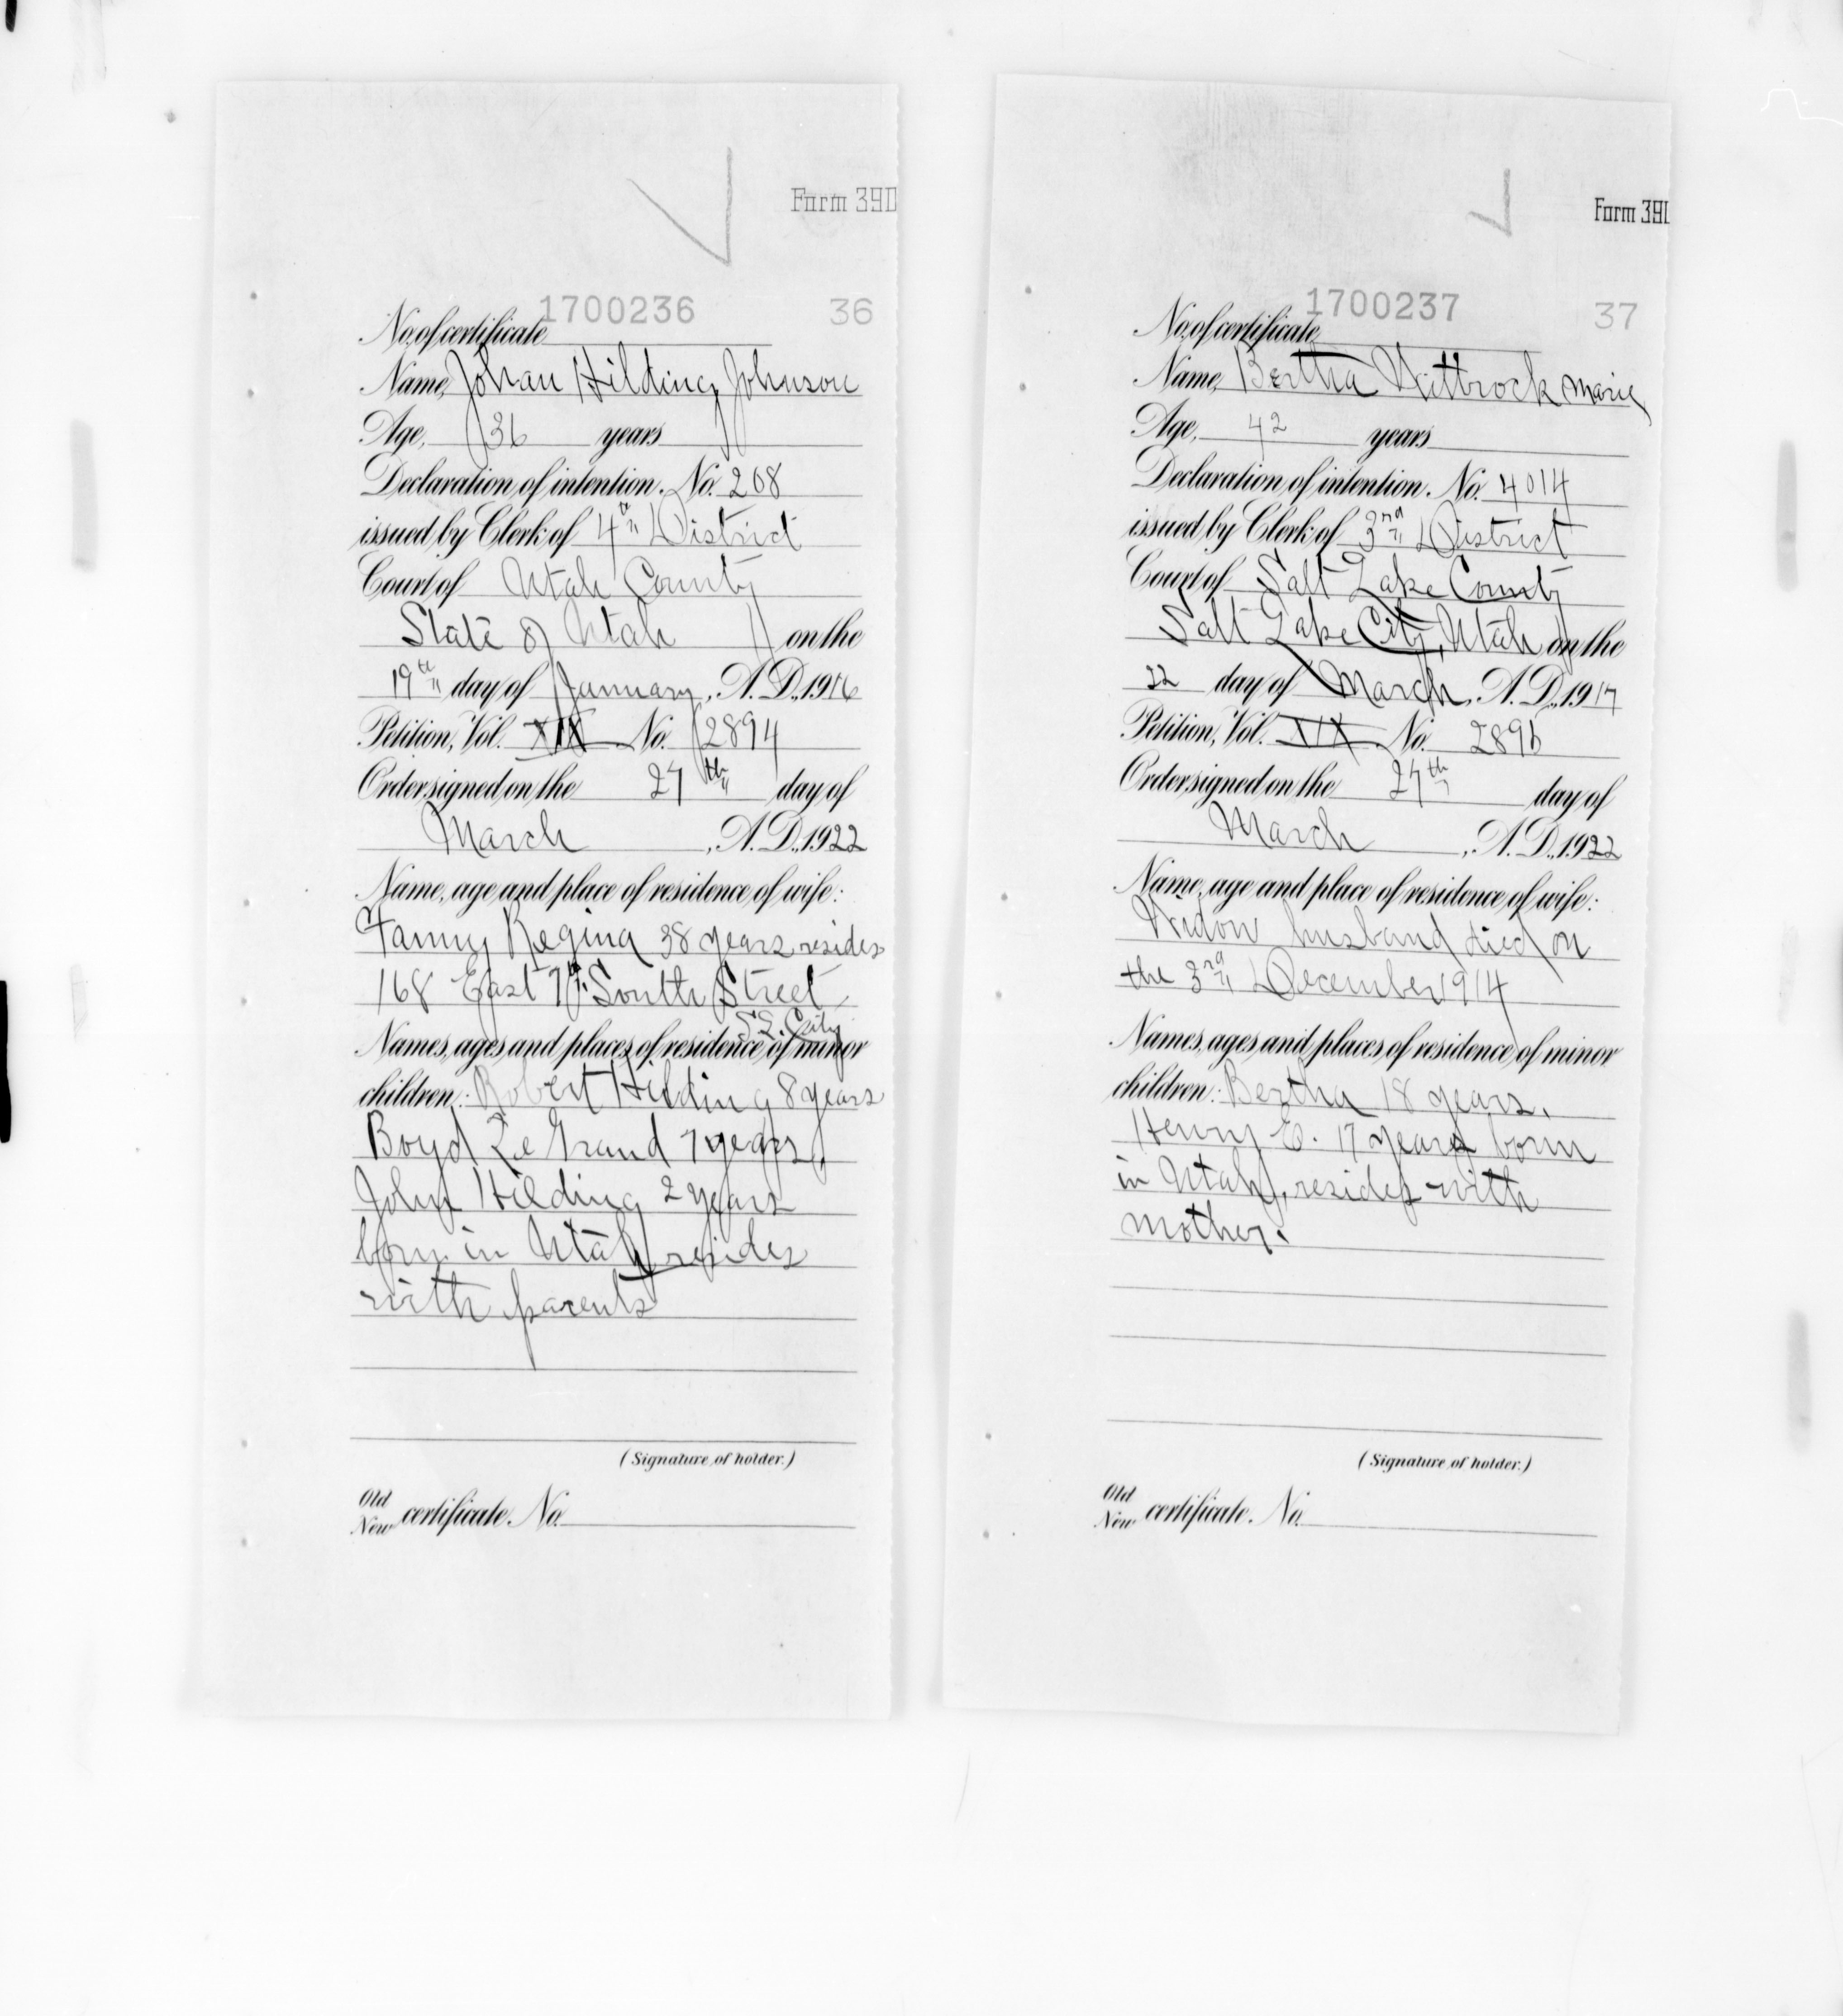 Form 39D
1700236 36
No. of certificate
Name, Johan Hilding Johnson
Age, 36 years
Declaration of intention, No. 208
issued by Clerk of 4th District
Court of Utah County
State of Utah on the
19th day of January, A.D., 1916
Petition, Vol. XIX No. 2894
Order signed on the 27th day of
March, A.D., 1922
Name, age and place of residence of wife:
Fanny Regina 38 years resides
168 East 7th South Street
S.L. City
Names, ages and places of residence of minor
children: Robert Hilding 8 years
Boyd Le Grand 7 years,
John Hilding 2 years
born in Utah, resides
with parents
(Signature of holder.)
Old
New certificate. No.
Form 39D
1700237 37
No. of certificate
Name, Bertha Wittrock Marie
Age, 42 years
Declaration of intention, No. 4014
issued by Clerk of 3rd District
Court of Salt Lake County
Salt Lake City, Utah on the
22 day of March, A.D., 1917
Petition, Vol. XIX No. 2896
Order signed on the 27th day of
March, A.D., 1922
Name, age and place of residence of wife:
Widow husband died on
the 3rd December 1914
Names, ages and places of residence of minor
children: Bertha 18 years,
Henry E. 17 years born
in Utah, resides with
mother.
(Signature of holder.)
Old
New certificate. No.